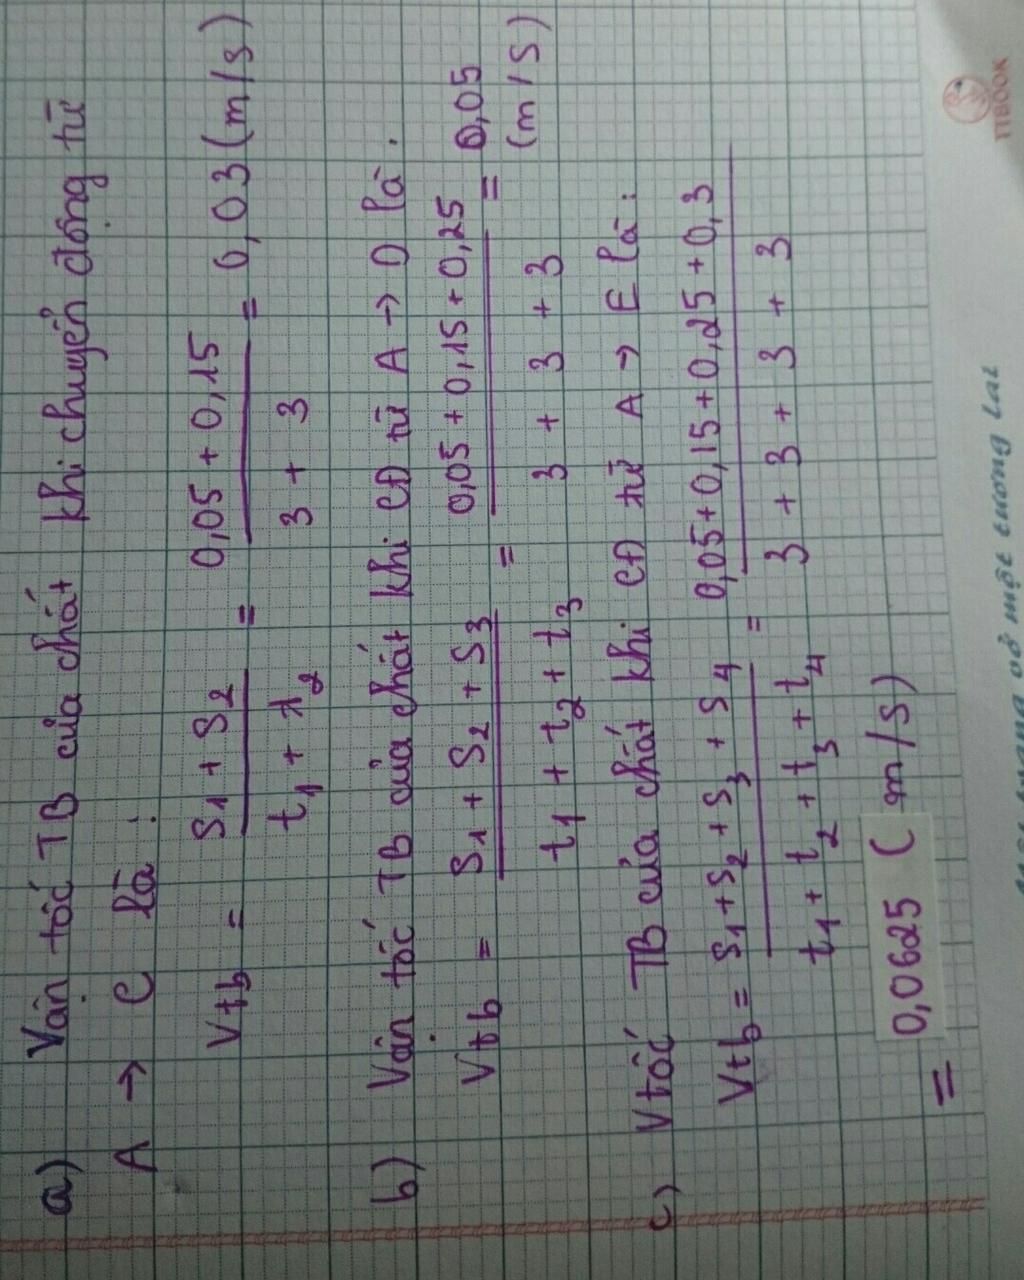 a) Vận tốc TB của chất khi chuyển động từ
A → C là :
Vtb = S1 + S2 / t1 + t2 = 0,05 + 0,15 / 3 + 3 = 0,03 (m/s)
b) Vận tốc TB của chất khi CĐ từ A → D là .
Vtb = S1 + S2 + S3 / t1 + t2 + t3 = 0,05 + 0,15 + 0,25 / 3 + 3 + 3 = 0,05
(m/s)
c) V tốc TB của chất khi CĐ từ A → E là :
Vtb = S1 + S2 + S3 + S4 / t1 + t2 + t3 + t4 = 0,05 + 0,15 + 0,25 + 0,3 / 3 + 3 + 3 + 3
= 0,0625 (m/s)
TTBOOK
một tương lai